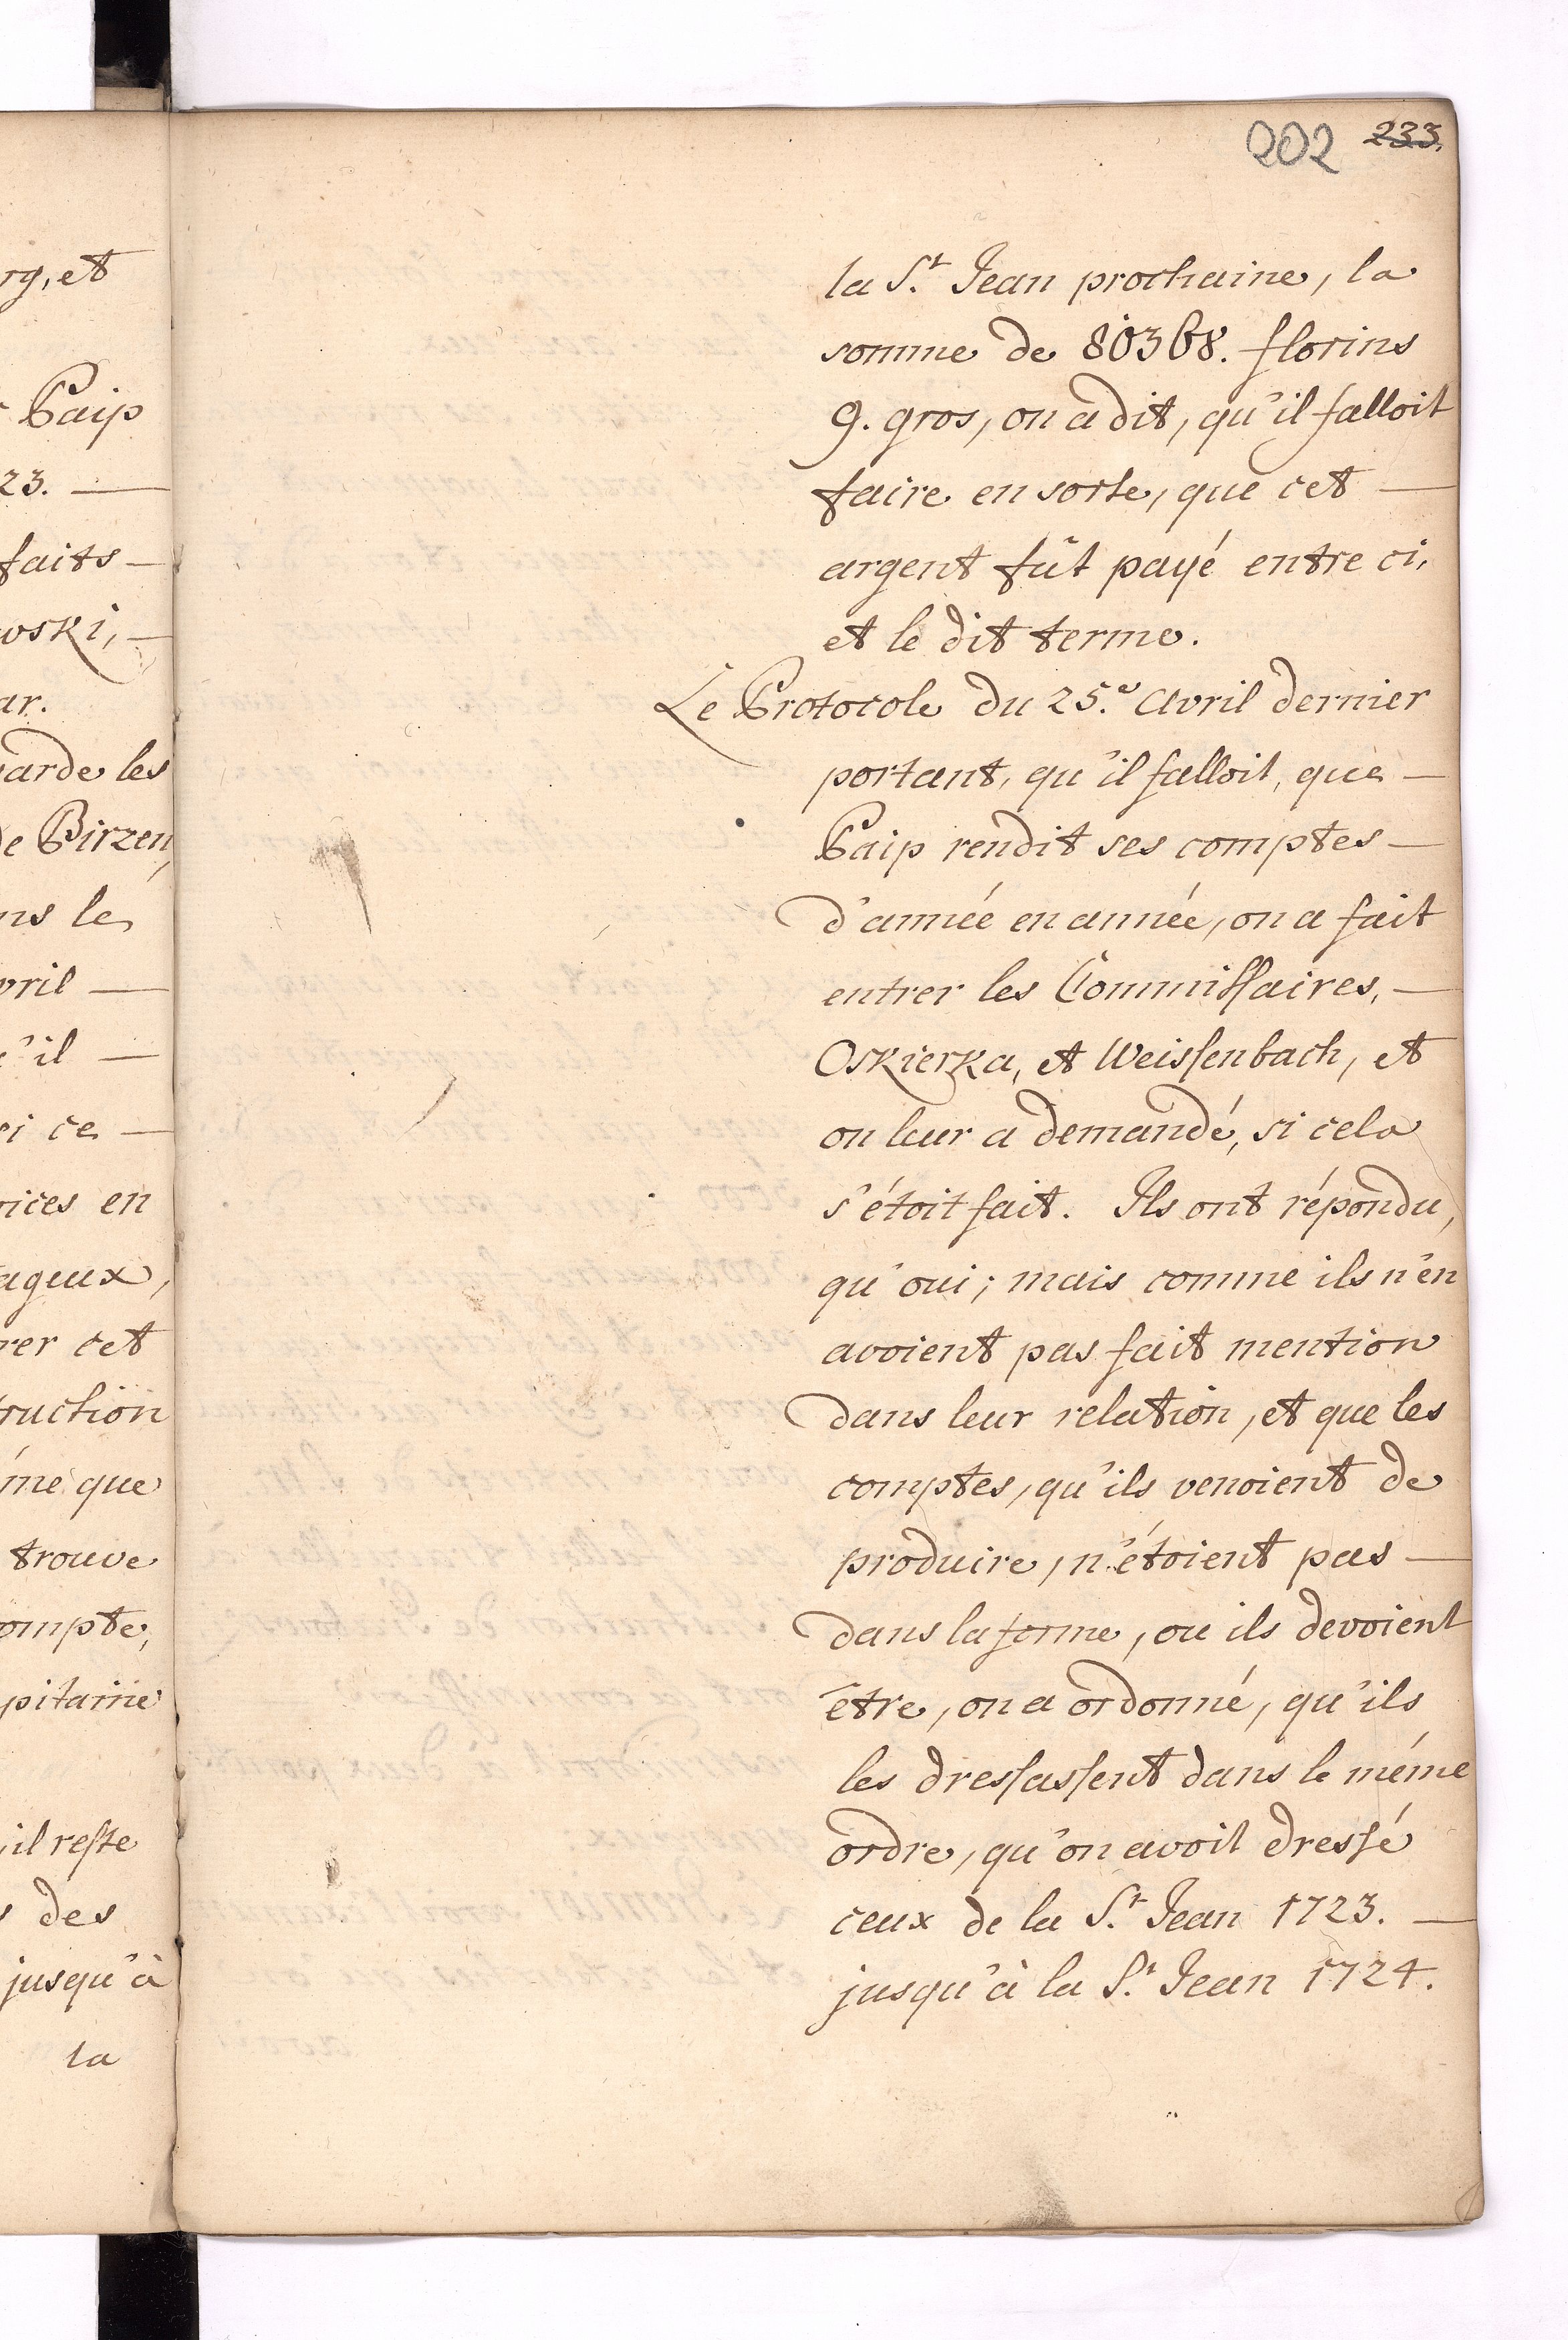 rg, et
Paip
23. —
faits —
wski, —
ar.
arde les
de Birzen,
ns le
vril —
'il —
si ce —
vices en
ageux,
rer cet
truction
me que
trouve
ompte,
pitaine
il reste
s des
jusqu'à
la
202 233.
la S.t Jean prochaine, la
somme de 80368. florins
9. gros, on a dit, qu'il falloit
faire en sorte, que cet —
argent fût payé entre ci,
et le dit terme.
Le Protocole du 25.e Avril dernier
portant, qu'il falloit, que —
Paip rendit ses comptes —
d'année en année, on a fait
entrer les Commissaires, —
Oskierka, et Weissenbach, et
on leur a demandé, si cela
s'étoit fait. Ils ont répondu,
qu'oui; mais comme ils n'en
avoient pas fait mention
dans leur relation, et que les
comptes, qu'ils venoient de
produire, n'étoient pas —
dans la forme, ou ils devoient
être, on a ordonné, qu'ils
les dressassent dans le même
ordre, qu'on avoit dressé
ceux de la S.t Jean 1723. —
jusqu'à la S.t Jean 1724.